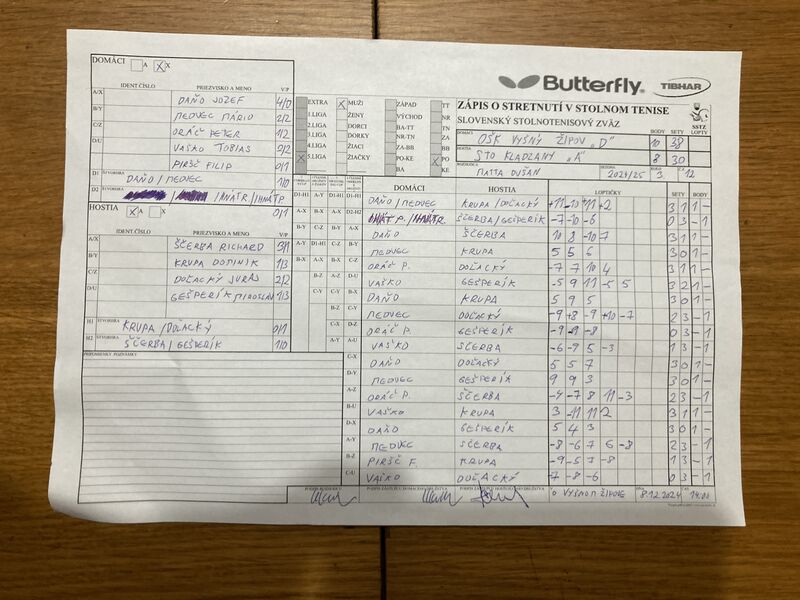 DOMÁCI A X X
IDENT.ČÍSLO PRIEZVISKO A MENO V/P
A/X DAŇO JOZEF 4/0
B/Y MEDVEC MÁRIO 2/2
C/Z ORÁČ PETER 1/2
D/U VAŠKO TOBIAS 0/2
PIRŠČ FILIP 0/1
D1 ŠTVORHRA DAŇO/MEDVEC 1/0
D2 /HNÁTR./HNÁTP 0/1
HOSTIA X A X
IDENT. ČÍSLO PRIEZVISKO A MENO V/P
A/X ŠČERBA RICHARD 3/1
B/Y KRUPA DOMINIK 1/3
C/Z DOĽACKÝ JURAJ 2/2
D/U GEŠPERÍK MIROSLAV 1/3
H1 ŠTVORHRA KRUPA/DOĽACKÝ 0/1
H2 ŠTVORHRA ŠČERBA/GEŠPERÍK 1/0
PRIPOMIENKY, POZNÁMKY
EXTRA X MUŽI ZÁPAD TT
I.LIGA ŽENY VÝCHOD TN
2.LIGA DORCI BA-TT ZA
3.LIGA DORKY NR-TN
4.LIGA ŽIACI ZA-BB BB
X 5.LIGA ŽIAČKY PO-KE X PO
BA KE
Butterfly TIBHAR
ZÁPIS O STRETNUTÍ V STOLNOM TENISE
SLOVENSKÝ STOLNOTENISOVÝ ZVÄZ
SSTZ
LOPTY
DOMÁCI OŠK VYŠNÝ ŽIPOV "D" BODY 10 SETY 38
HOSTIA STO KLADZANY "A" 8 30
MATTA DUŠAN 2024/25 3 12
DOMÁCI HOSTIA LOPTIČKY SETY BODY
D1-H1 DAŇO/MEDVEC KRUPA/DOĽACKÝ +11 -10 +11 +2 3 1 1 -
D2-H2 HNÁT P./HNÁTR. ŠČERBA/GEŠPERÍK -7 -10 -6 0 3 - 1
DAŇO ŠČERBA 10 8 -10 7 3 1 1 -
MEDVEC KRUPA 5 5 6 3 0 1 -
ORÁČ P. DOĽACKÝ -7 7 10 4 3 1 1 -
VAŠKO GEŠPERÍK -5 9 11 -5 5 3 2 1 -
DAŇO KRUPA 5 9 5 3 0 1 -
MEDVEC DOĽACKÝ -9 +8 -9 +10 -7 2 3 - 1
ORÁČ P. GEŠPERÍK -9 -9 -8 0 3 - 1
VAŠKO ŠČERBA -6 -9 5 -3 1 3 - 1
C-X DAŇO DOĽACKÝ 5 5 7 3 0 1 -
D-Y MEDVEC GEŠPERÍK 9 9 3 3 0 1 -
A-Z ORÁČ P. ŠČERBA -4 -7 8 11 -3 2 3 - 1
B-U VAŠKO KRUPA 3 -11 11 2 3 1 1 -
D-X DAŇO GEŠPERÍK 5 4 3 3 0 1 -
A-Y MEDVEC ŠČERBA -8 -6 7 6 -8 2 3 - 1
B-Z PIRŠČ F. KRUPA -9 -5 7 -8 1 3 - 1
C/U VAŠKO DOĽACKÝ -7 -8 -6 0 3 - 1
V VYŠNOM ŽIPOVE 8.12.2024 14:00